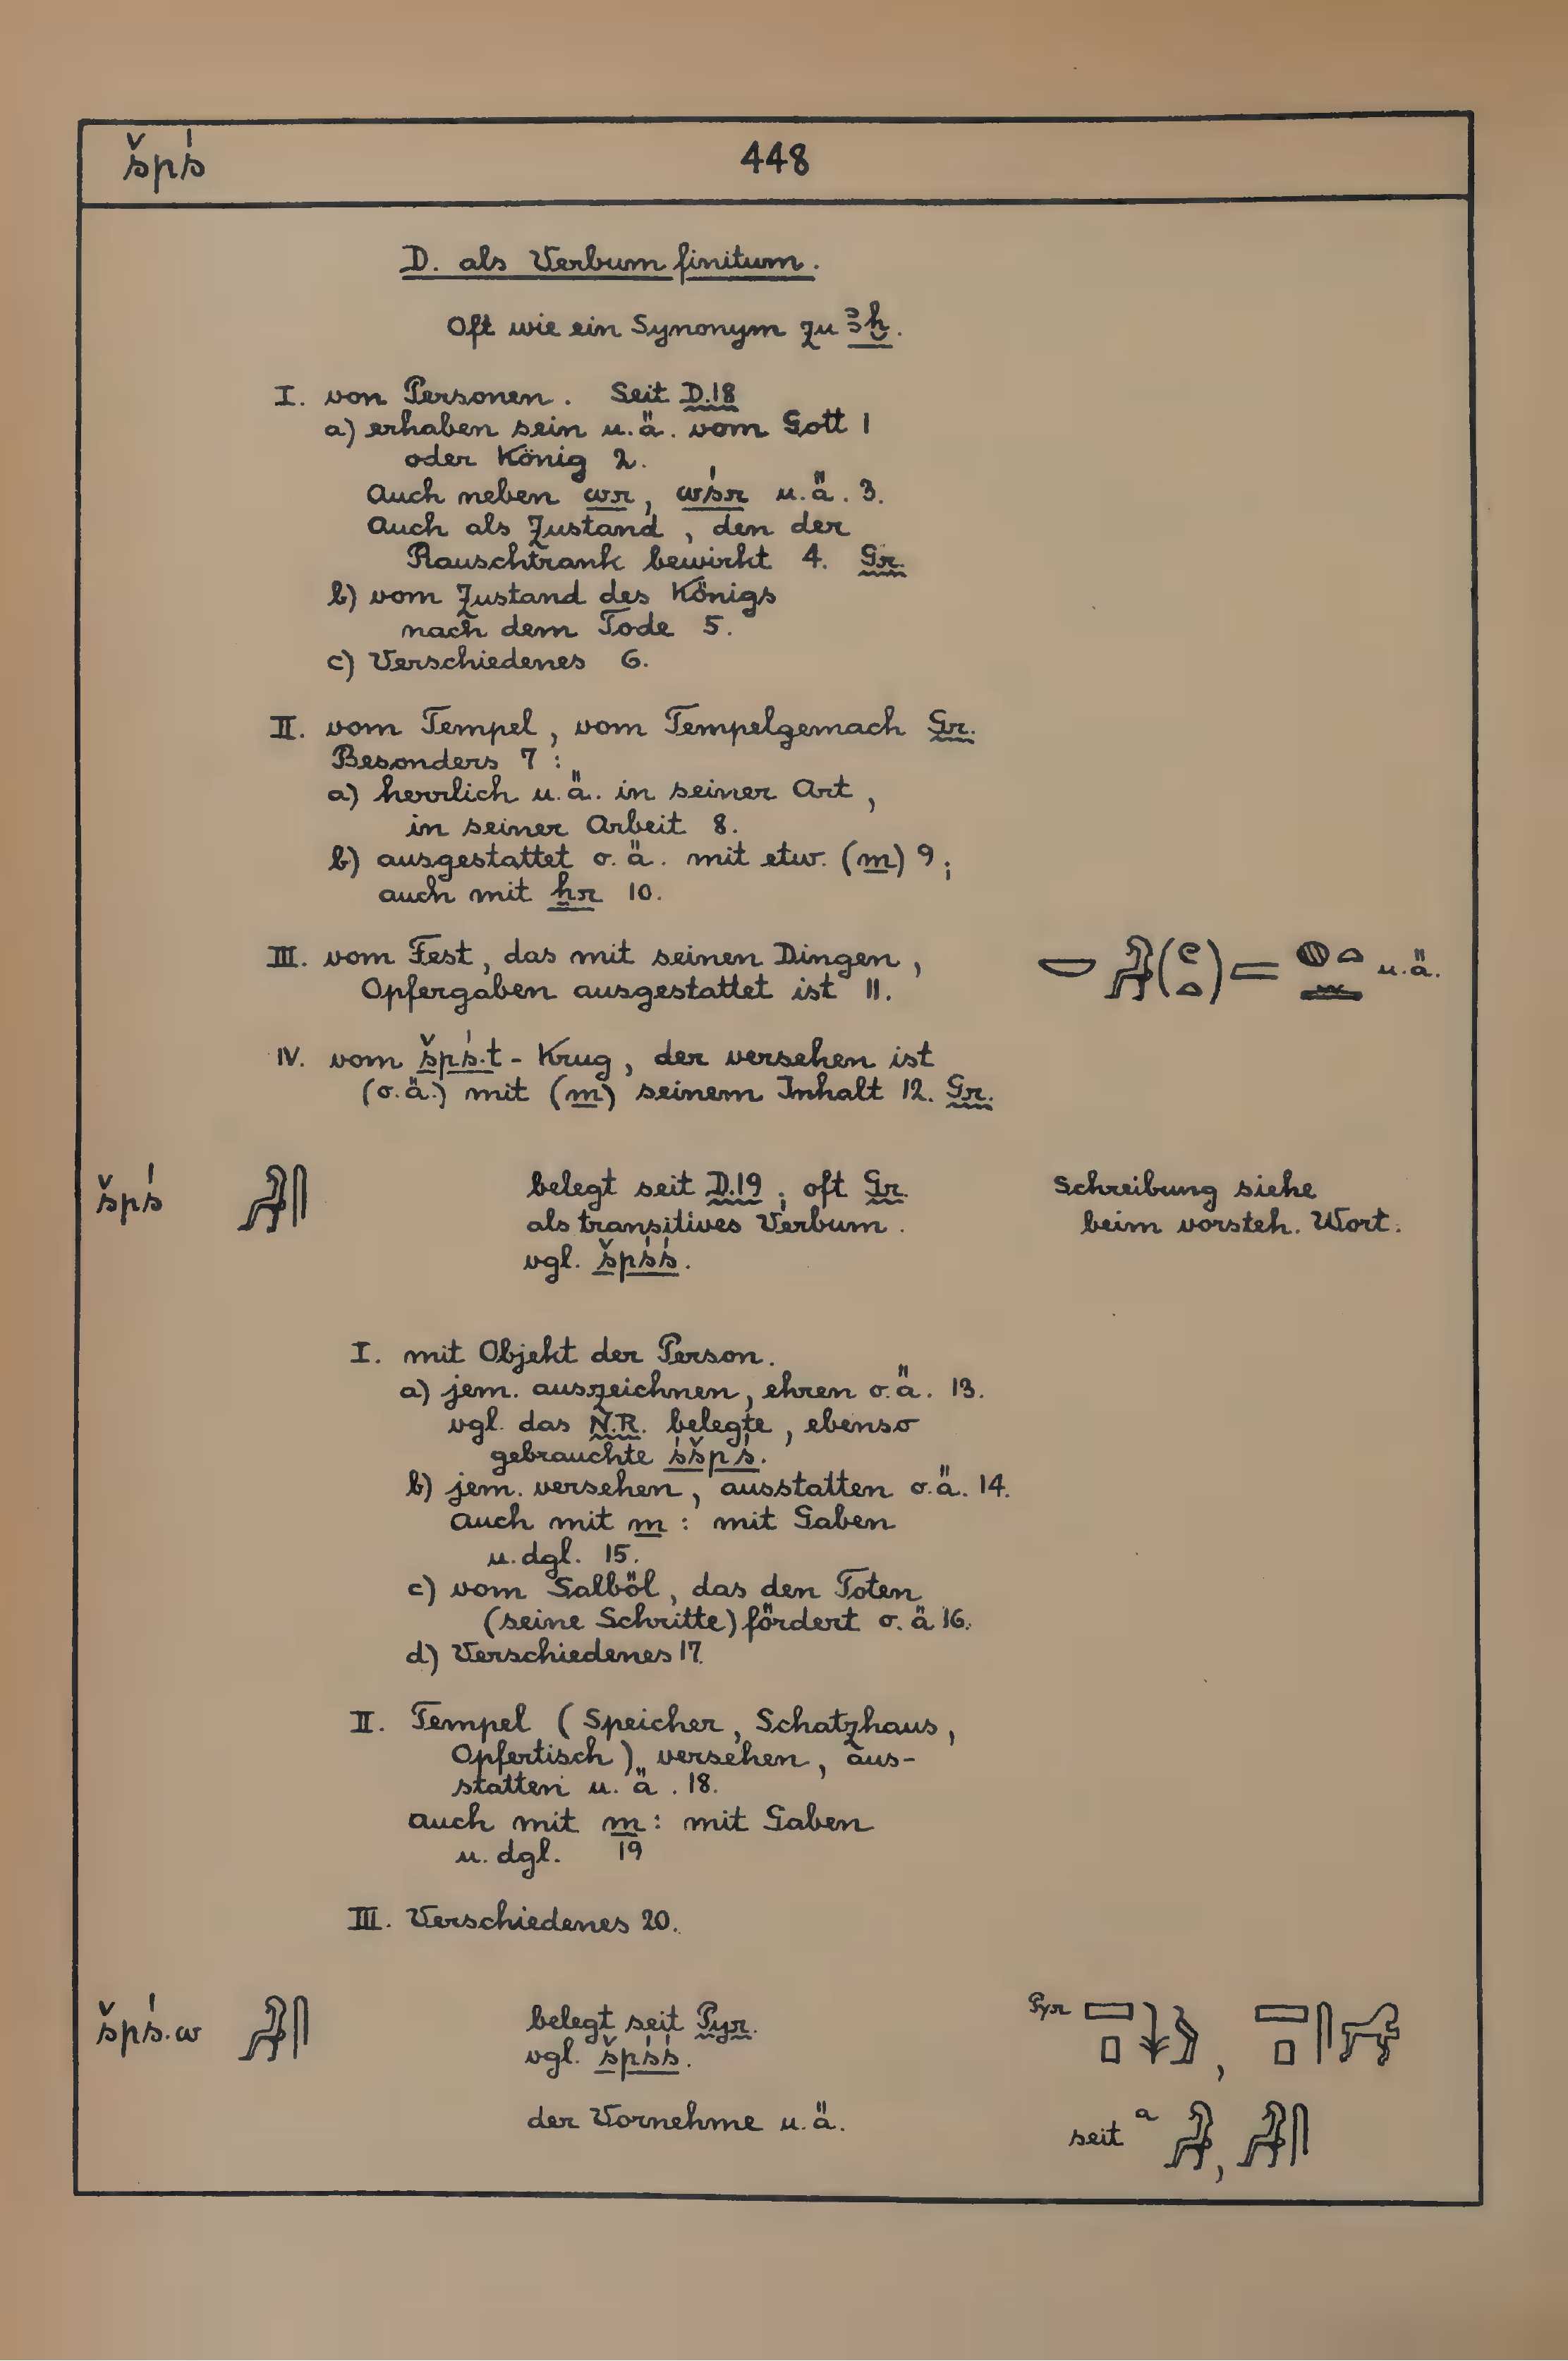 špś
448
D. als Verbum finitum.
Oft wie ein Synonym zu ꜣḫ.
I. von Personen. Seit D.18
a) erhaben sein u.ä. vom Gott 1
oder König 2.
Auch neben wr, wśr u.ä. 3.
Auch als Zustand, den der
Rauschtrank bewirkt 4. Gr.
b) vom Zustand des Königs
nach dem Tode 5.
c) Verschiedenes 6.
II. vom Tempel, vom Tempelgemach Gr.
Besonders 7:
a) herrlich u.ä. in seiner Art,
in seiner Arbeit 8.
b) ausgestattet o.ä. mit etw. (m) 9;
auch mit ẖr 10.
III. vom Fest, das mit seinen Dingen, u.ä.
Opfergaben ausgestattet ist 11.
IV. vom špś.t-Krug, der versehen ist
(o.ä.) mit (m) seinem Inhalt 12. Gr.
špś 𓀻𓋴 belegt seit D.19; oft Gr. Schreibung siehe
als transitives Verbum. beim vorsteh. Wort.
vgl. špśś.
I. mit Objekt der Person.
a) jem. auszeichnen, ehren o.ä. 13.
vgl. das N.R. belegte, ebenso
gebrauchte śšpś.
b) jem. versehen, ausstatten o.ä. 14.
Auch mit m: mit Gaben
u.dgl. 15.
c) vom Salböl, das den Toten
(seine Schritte) fördert o.ä 16.
d) Verschiedenes 17.
II. Tempel (Speicher, Schatzhaus,
Opfertisch) versehen, aus-
statten u.ä. 18.
auch mit m: mit Gaben
u.dgl. 19
III. Verschiedenes 20.
špś.w 𓀻𓋴 belegt seit Pyr. Pyr
vgl. špśś.
der Vornehme u.ä. seit a 𓀻, 𓀻𓋴